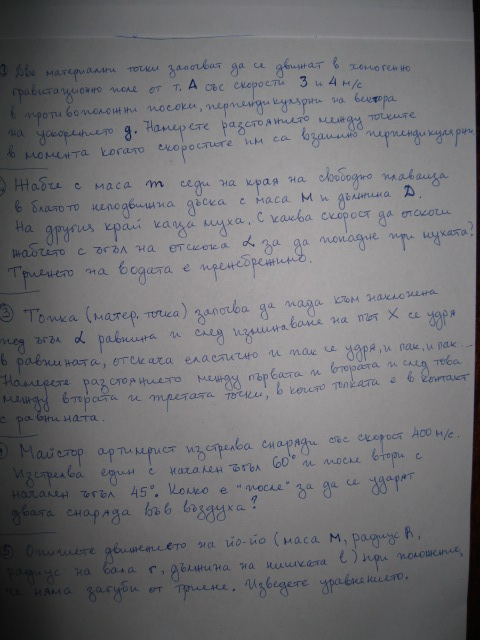 Две материални точки започват да се движат в хомогенно
гравитационно поле от т. А със скорости 3 и 4 м/с
в противоположни посоки, перпендикулярни на вектора
на ускорението g. Намерете разстоянието между точките
в момента когато скоростите им са взаимно перпендикулярни.
Жабче с маса m седи на края на свободно плаваща
в блатото неподвижна дъска с маса М и дължина D.
На другия край каца муха. С каква скорост да отскочи
жабчето с ъгъл на отскока α за да попадне при мухата?
Триенето на водата е пренебрежимо.
③ Топка (матер. точка) започва да пада към наклонена
под ъгъл α равнина и след изминаване на път X се удря
в равнината, отскача еластично и пак се удря, и пак, и пак...
Намерете разстоянието между първата и втората и след това
между втората и третата точки, в които топката е в контакт
с равнината.
④ Майстор артилерист изстрелва снаряди със скорост 400 м/с.
Изстрелва един с начален ъгъл 60° и после втори с
начален ъгъл 45°. Колко е "после" за да се ударят
двата снаряда във въздуха?
⑤ Опишете движението на йо-йо (маса М, радиус R,
радиус на вала r, дължина на нишката l) при положение,
че няма загуби от триене. Изведете уравнението.